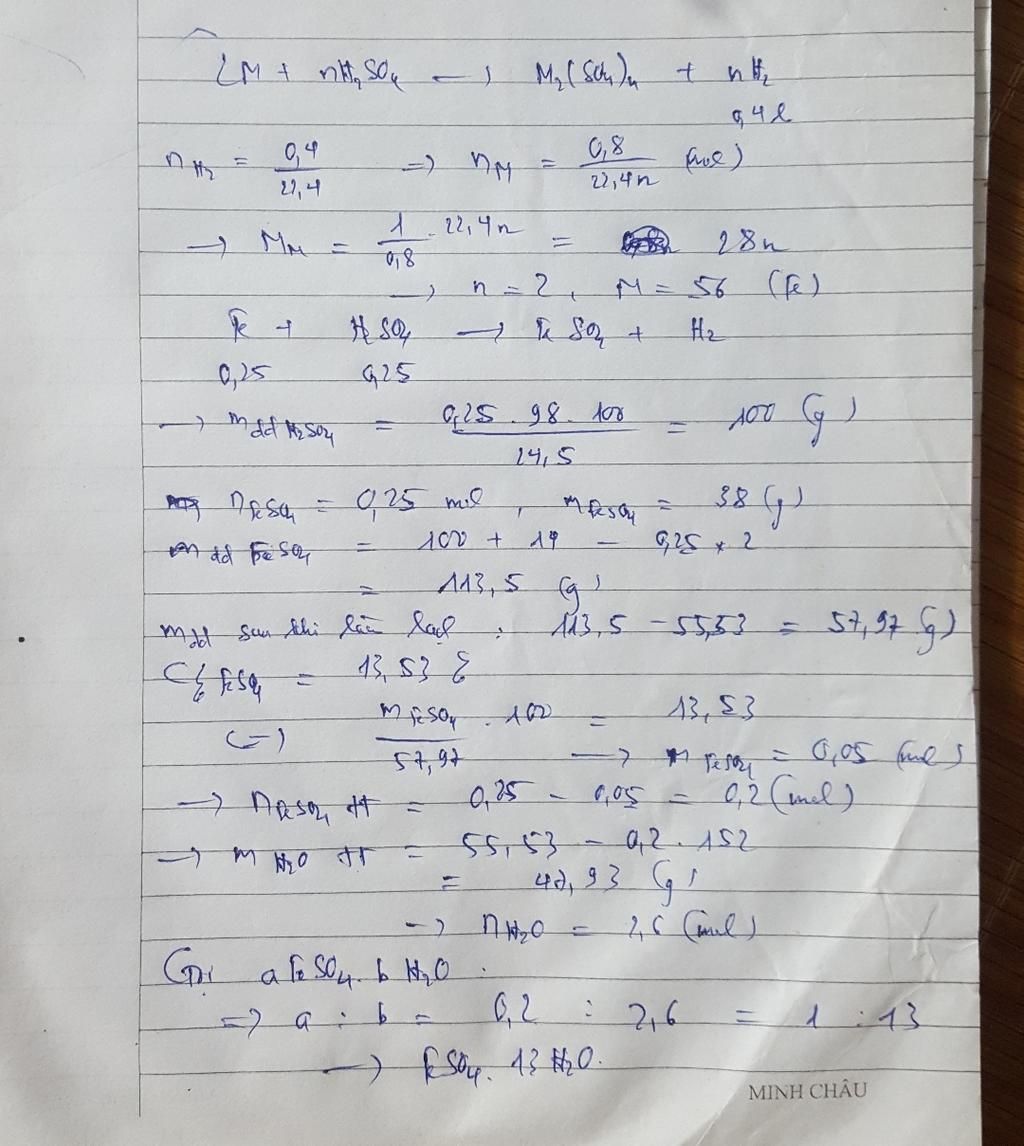 2M + nH₂SO₄ → M₂(SO₄)ₙ + nH₂
0,4 l
n H₂ = 0,4/22,4 => n M = 0,8/22,4n (mol)
→ M M = 1/0,8 . 22,4n = 28n
→ n = 2, M = 56 (Fe)
Fe + H₂SO₄ → FeSO₄ + H₂
0,25 0,25
→ m dd H₂SO₄ = 0,25 . 98 . 100/24,5 = 100 (g)
n FeSO₄ = 0,25 mol, m FeSO₄ = 38 (g)
m dd FeSO₄ = 100 + 14 - 0,25 × 2
= 113,5 (g)
m dd sau khi làm lạnh : 113,5 - 55,53 = 57,97 (g)
C% FeSO₄ = 13,53 %
(=) m FeSO₄ . 100/57,97 = 13,53
→ n FeSO₄ = 0,05 (mol)
→ n FeSO₄ tt = 0,25 - 0,05 = 0,2 (mol)
→ m H₂O tt = 55,53 - 0,2 . 152
= 47,93 (g)
→ n H₂O = 2,6 (mol)
Gọi aFeSO₄.bH₂O.
=> a : b = 0,2 : 2,6 = 1 : 13
→ FeSO₄.13H₂O.
MINH CHÂU